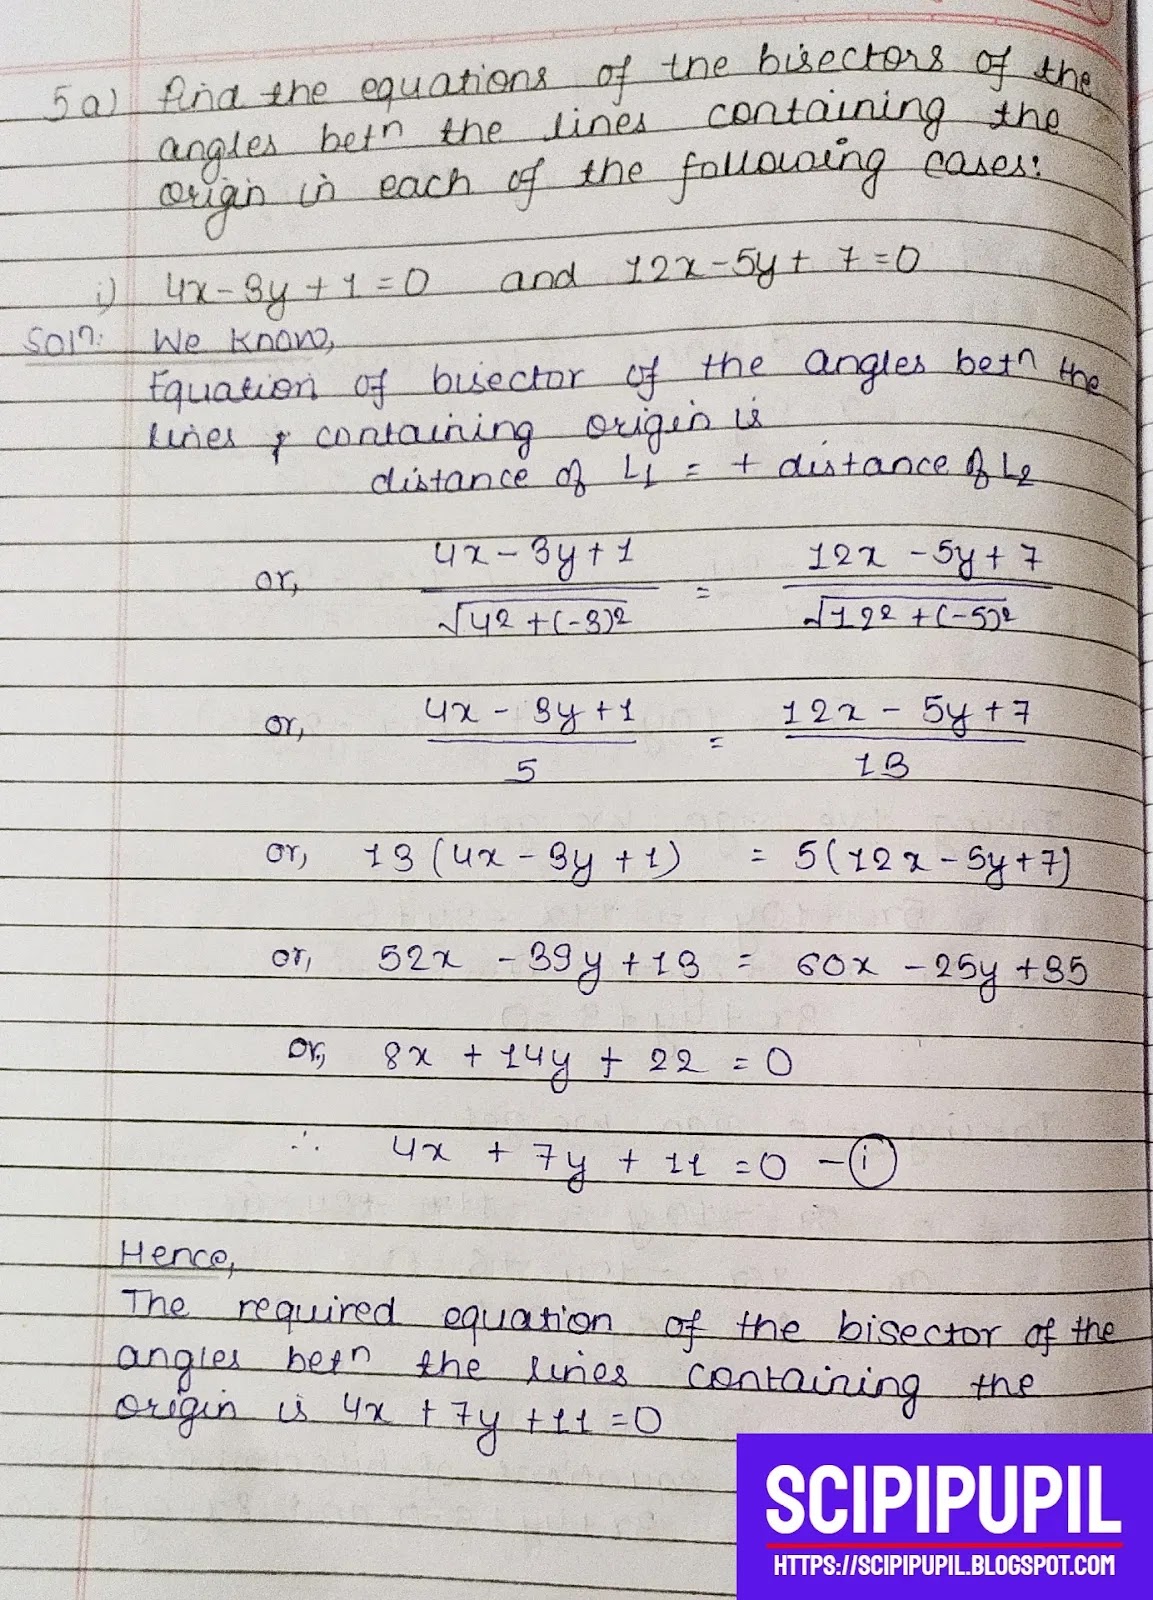 5a) Find the equations of the bisectors of the
angles betn the lines containing the
origin in each of the following cases:
i) 4x-3y+1=0 and 12x-5y+7=0
Soln: We know,
Equation of bisector of the angles betn the
lines containing origin is
distance of L1 = + distance of L2
or, 4x-3y+1/√4²+(-3)² = 12x-5y+7/√12²+(-5)²
or, 4x-3y+1/5 = 12x-5y+7/13
or, 13(4x-3y+1) = 5(12x-5y+7)
or, 52x-39y+13 = 60x-25y+35
or, 8x+14y+22=0
∴ 4x+7y+11=0 -(i)
Hence,
The required equation of the bisector of the
angles betn the lines containing the
origin is 4x+7y+11=0
SCIPIPUPIL
HTTPS://SCIPIPUPIL.BLOGSPOT.COM